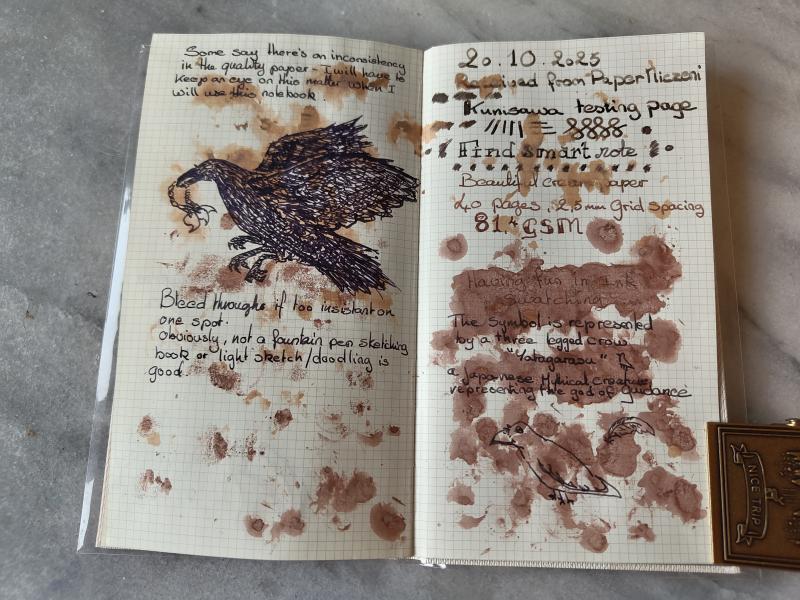 Some say there's an inconsistency
in the quality paper - I will have to
keep an eye on this matter when I
will use this notebook.
Bleed throughs if too insistant on
one spot.
Obviously, not a fountain pen sketching
book or light sketch/doodling is
good.
20.10.2025
Received from Paper Niczeni
Kunisawa testing page
Find smart note
Beautiful cream paper
40 pages, 2,5mm Grid spacing
81.4 GSM
Having fun in ink
swatching
The symbol is represented
by a three legged crow
"Yatagarasu"
a Japanese Mythical creature
representing the god of Guidance
NICE TRIP